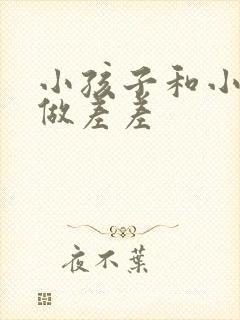 小孩子和小
做差差
夜不葉